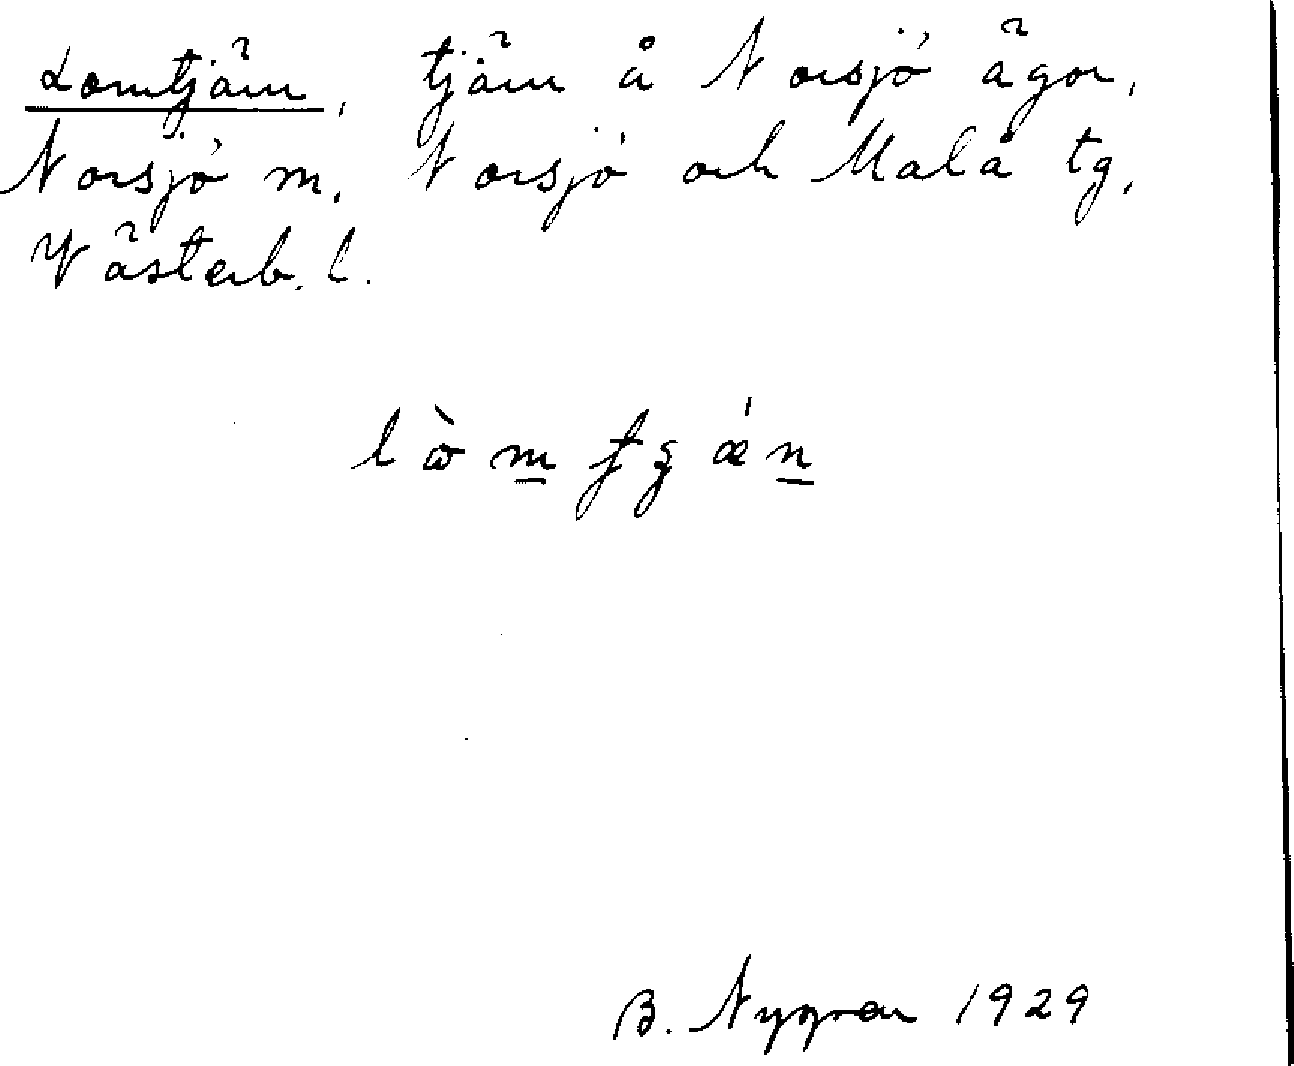 Lomtjärn, tjärn å Norsjö ägor,
Norsjö sn, Norsjö och Malå tg,
Västerb. l.
B. Nygren 1929